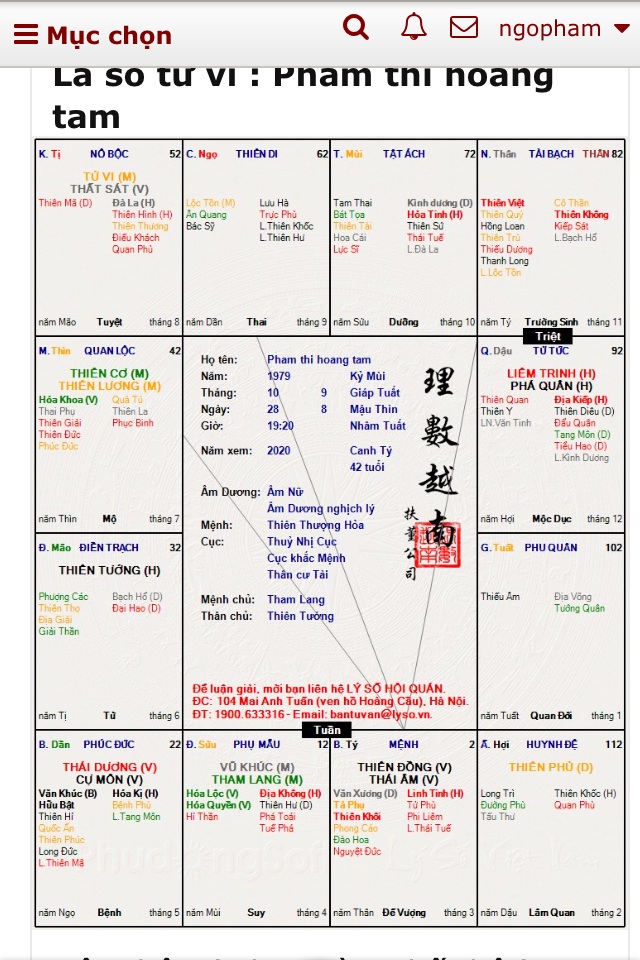 Mục chọn
ngopham
Lá số tử vi : Pham thi hoang
tam
K. Tị NÔ BỘC 52
TỬ VI (M)
THẤT SÁT (V)
Thiên Mã (D) Đà La (H)
Thiên Hình (H)
Thiên Thương
Điếu Khách
Quan Phủ
năm Mão Tuyệt tháng 8
C. Ngọ THIÊN DI 62
Lộc Tồn (M) Lưu Hà
Ân Quang Trực Phù
Bác Sỹ L.Thiên Khốc
L.Thiên Hư
năm Dần Thai tháng 9
T. Mùi TẬT ÁCH 72
Tam Thai Kình dương (D)
Bát Tọa Hỏa Tinh (H)
Thiên Tài Thiên Sứ
Hoa Cái Thái Tuế
Lực Sĩ L.Đà La
năm Sửu Dưỡng tháng 10
N. Thân TÀI BẠCH THÂN 82
Thiên Việt Cô Thần
Thiên Quý Thiên Không
Hồng Loan Kiếp Sát
Thiên Trù L.Bạch Hổ
Thiếu Dương
Thanh Long
L.Lộc Tồn
năm Tý Trường Sinh tháng 11
Triệt
M.Thìn QUAN LỘC 42
THIÊN CƠ (M)
THIÊN LƯƠNG (M)
Hóa Khoa (V) Quả Tú
Thai Phụ Thiên La
Thiên Giải Phục Binh
Thiên Đức
Phúc Đức
năm Thìn Mộ tháng 7
Họ tên: Pham thi hoang tam
Năm: 1979 Kỷ Mùi
Tháng: 10 9 Giáp Tuất
Ngày: 28 8 Mậu Thìn
Giờ: 19:20 Nhâm Tuất
Năm xem: 2020 Canh Tý
42 tuổi
Âm Dương: Âm Nữ
Âm Dương nghịch lý
Mệnh: Thiên Thượng Hỏa
Cục: Thuỷ Nhị Cục
Cục khắc Mệnh
Thân cư Tài
Mệnh chủ: Tham Lang
Thân chủ: Thiên Tướng
理數越南
扶董公司
Để luận giải, mời bạn liên hệ LÝ SỐ HỘI QUÁN.
ĐC: 104 Mai Anh Tuấn (ven hồ Hoàng Cầu), Hà Nội.
ĐT: 1900.633316 - Email: bantuvan@lyso.vn.
Q. Dậu TỬ TỨC 92
LIÊM TRINH (H)
PHÁ QUÂN (H)
Thiên Quan Địa Kiếp (H)
Thiên Y Thiên Diêu (D)
LN.Văn Tinh Đẩu Quân
Tang Môn (D)
Tiểu Hao (D)
L.Kình Dương
năm Hợi Mộc Dục tháng 12
Đ. Mão ĐIỀN TRẠCH 32
THIÊN TƯỚNG (H)
Phượng Các Bạch Hổ (D)
Thiên Thọ Đại Hao (D)
Địa Giải
Giải Thần
năm Tị Tử tháng 6
G. Tuất PHU QUÂN 102
Thiếu Âm Địa Võng
Tướng Quân
năm Tuất Quan Đới tháng 1
Tuần
B. Dần PHÚC ĐỨC 22
THÁI DƯƠNG (V)
CỰ MÔN (V)
Văn Khúc (B) Hóa Kị (H)
Hữu Bật Bệnh Phù
Thiên Hỉ L.Tang Môn
Quốc Ấn
Thiên Phúc
Long Đức
L.Thiên Mã
năm Ngọ Bệnh tháng 5
Đ. Sửu PHỤ MẪU 12
VŨ KHÚC (M)
THAM LANG (M)
Hóa Lộc (V) Địa Không (H)
Hóa Quyền (V) Thiên Hư (D)
Hỉ Thần Phá Toái
Tuế Phá
năm Mùi Suy tháng 4
B. Tý MỆNH 2
THIÊN ĐỒNG (V)
THÁI ÂM (V)
Văn Xương (D) Linh Tinh (H)
Tả Phụ Tử Phù
Thiên Khôi Phi Liêm
Phong Cáo L.Thái Tuế
Đào Hoa
Nguyệt Đức
năm Thân Đế Vượng tháng 3
Ấ. Hợi HUYNH ĐỆ 112
THIÊN PHỦ (D)
Long Trì Thiên Khốc (H)
Đường Phù Quan Phù
Tấu Thư
năm Dậu Lâm Quan tháng 2